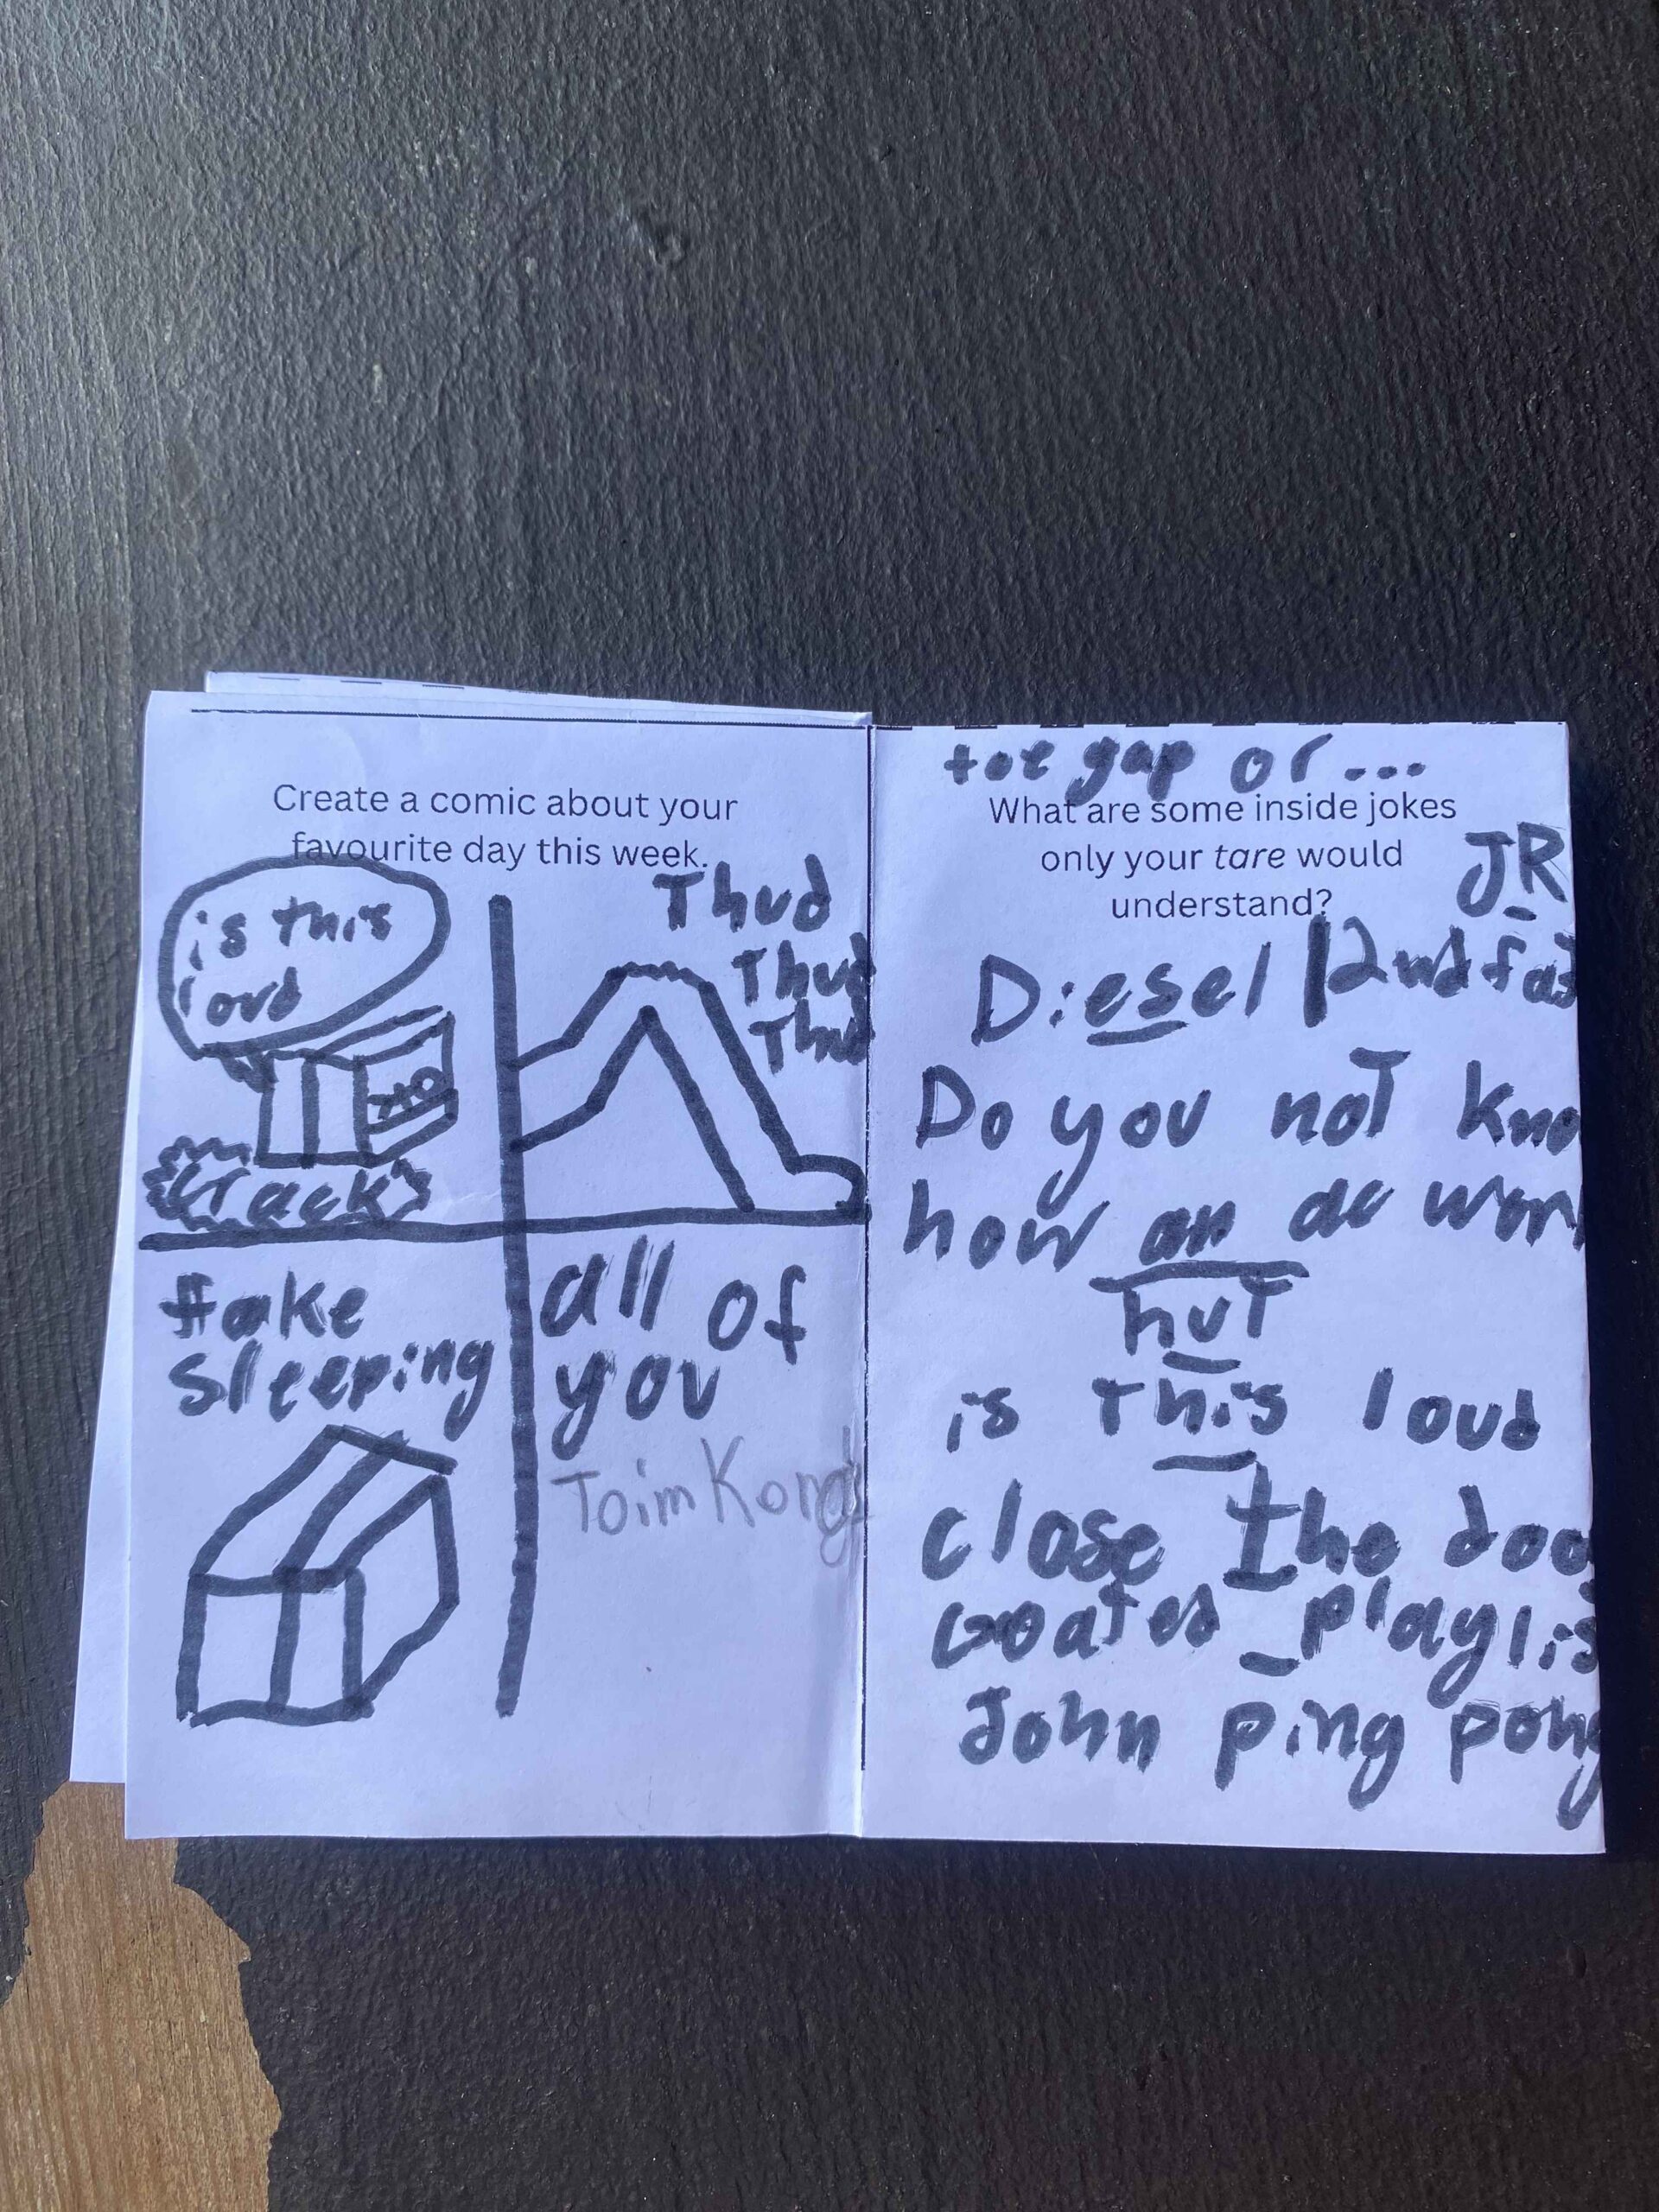 Create a comic about your
favourite day this week.
is this
loud
Crack
Thud
Thud
Thud
fake
sleeping
all of
you
Toim Kong
toe gap or...
What are some inside jokes
only your tare would
understand?
JR
Diesel | 2nd fas
Do you not kno
how an ac wor
hut
is this loud
close the doo
Goated playlis
John ping pong